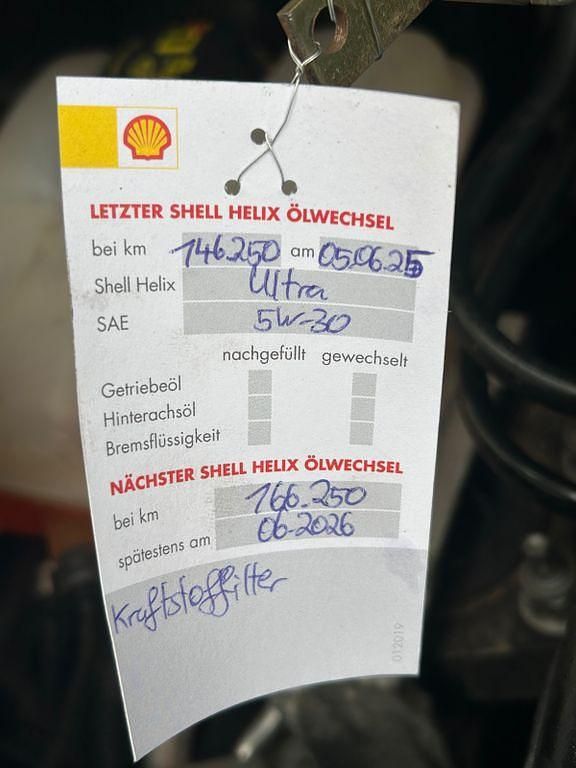 LETZTER SHELL HELIX ÖLWECHSEL
bei km 146.250 am 05.06.25
Shell Helix Ultra
SAE 5W-30
nachgefüllt gewechselt
Getriebeöl
Hinterachsöl
Bremsflüssigkeit
NÄCHSTER SHELL HELIX ÖLWECHSEL
bei km 166.250
spätestens am 06-2026
Kraftstoffilter
012019